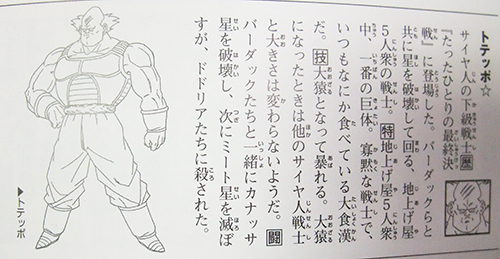 トテッポ☆
サイヤ人の下級戦士 歴
『たったひとりの最終決
戦』に登場した。バーダックらと
共に星を破壊して回る、地上げ屋
5人衆の戦士。特地上げ屋5人衆
中、一番の巨体。寡黙な戦士で、
いつもなにか食べている大食漢
だ。技大猿となって暴れる。大猿
になったときは他のサイヤ人戦士
と大きさは変わらないようだ。闘
バーダックたちと一緒にカナッサ
星を破壊し、次にミート星を滅ぼ
すが、ドドリアたちに殺された。
▲トテッポ